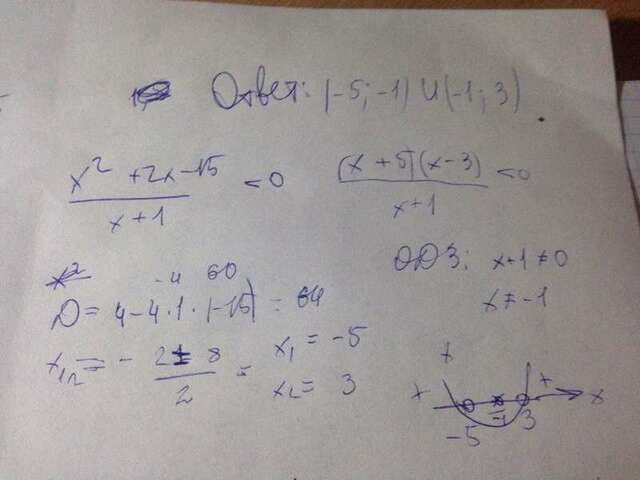 Ответ: (-5; -1) U (-1; 3)
x² + 2x - 15 / x + 1 < 0
(x + 5)(x - 3) / x + 1 < 0
ОДЗ: x + 1 ≠ 0
x ≠ -1
-4 60
D = 4 - 4 · 1 · (-15) = 64
x₁,₂ = - 2 ± 8 / 2 = x₁ = -5
x₂ = 3
+ + + x
-5 -1 3